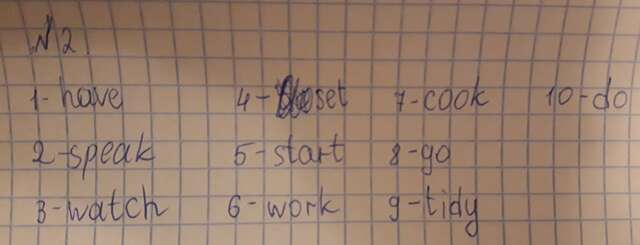 №2.
1-have 4-set 7-cook 10-do
2-speak 5-start 8-go
3-watch 6-work 9-tidy